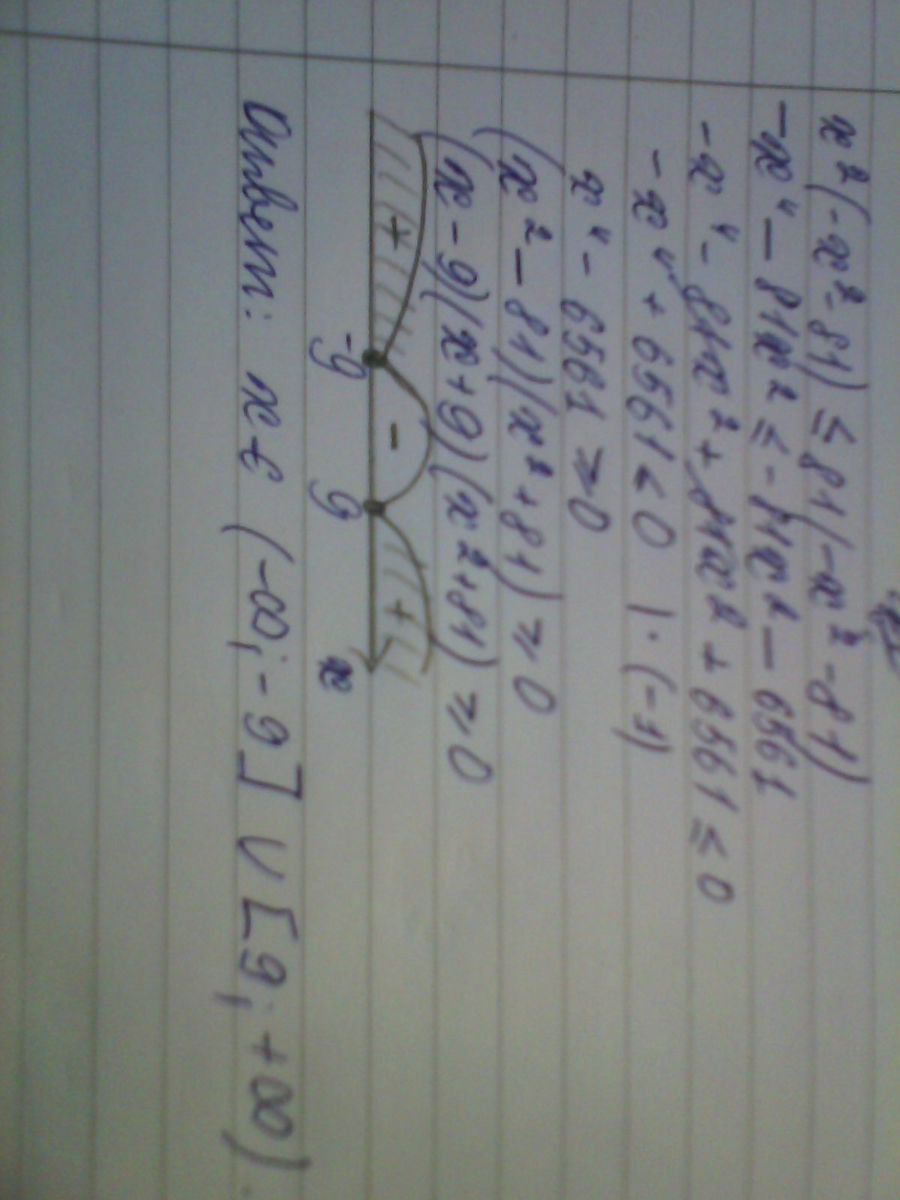 x²(-x²-81) ≤ 81(-x²-81)
-x⁴ - 81x² ≤ -81x² - 6561
-x⁴ - 81x² + 81x² + 6561 ≤ 0
-x⁴ + 6561 ≤ 0 | · (-1)
x⁴ - 6561 ≥ 0
(x² - 81)(x² + 81) ≥ 0
(x - 9)(x + 9)(x² + 81) ≥ 0
+ - +
-9 9 x
Ответ: x ∈ (-∞; -9] ∪ [9; +∞).